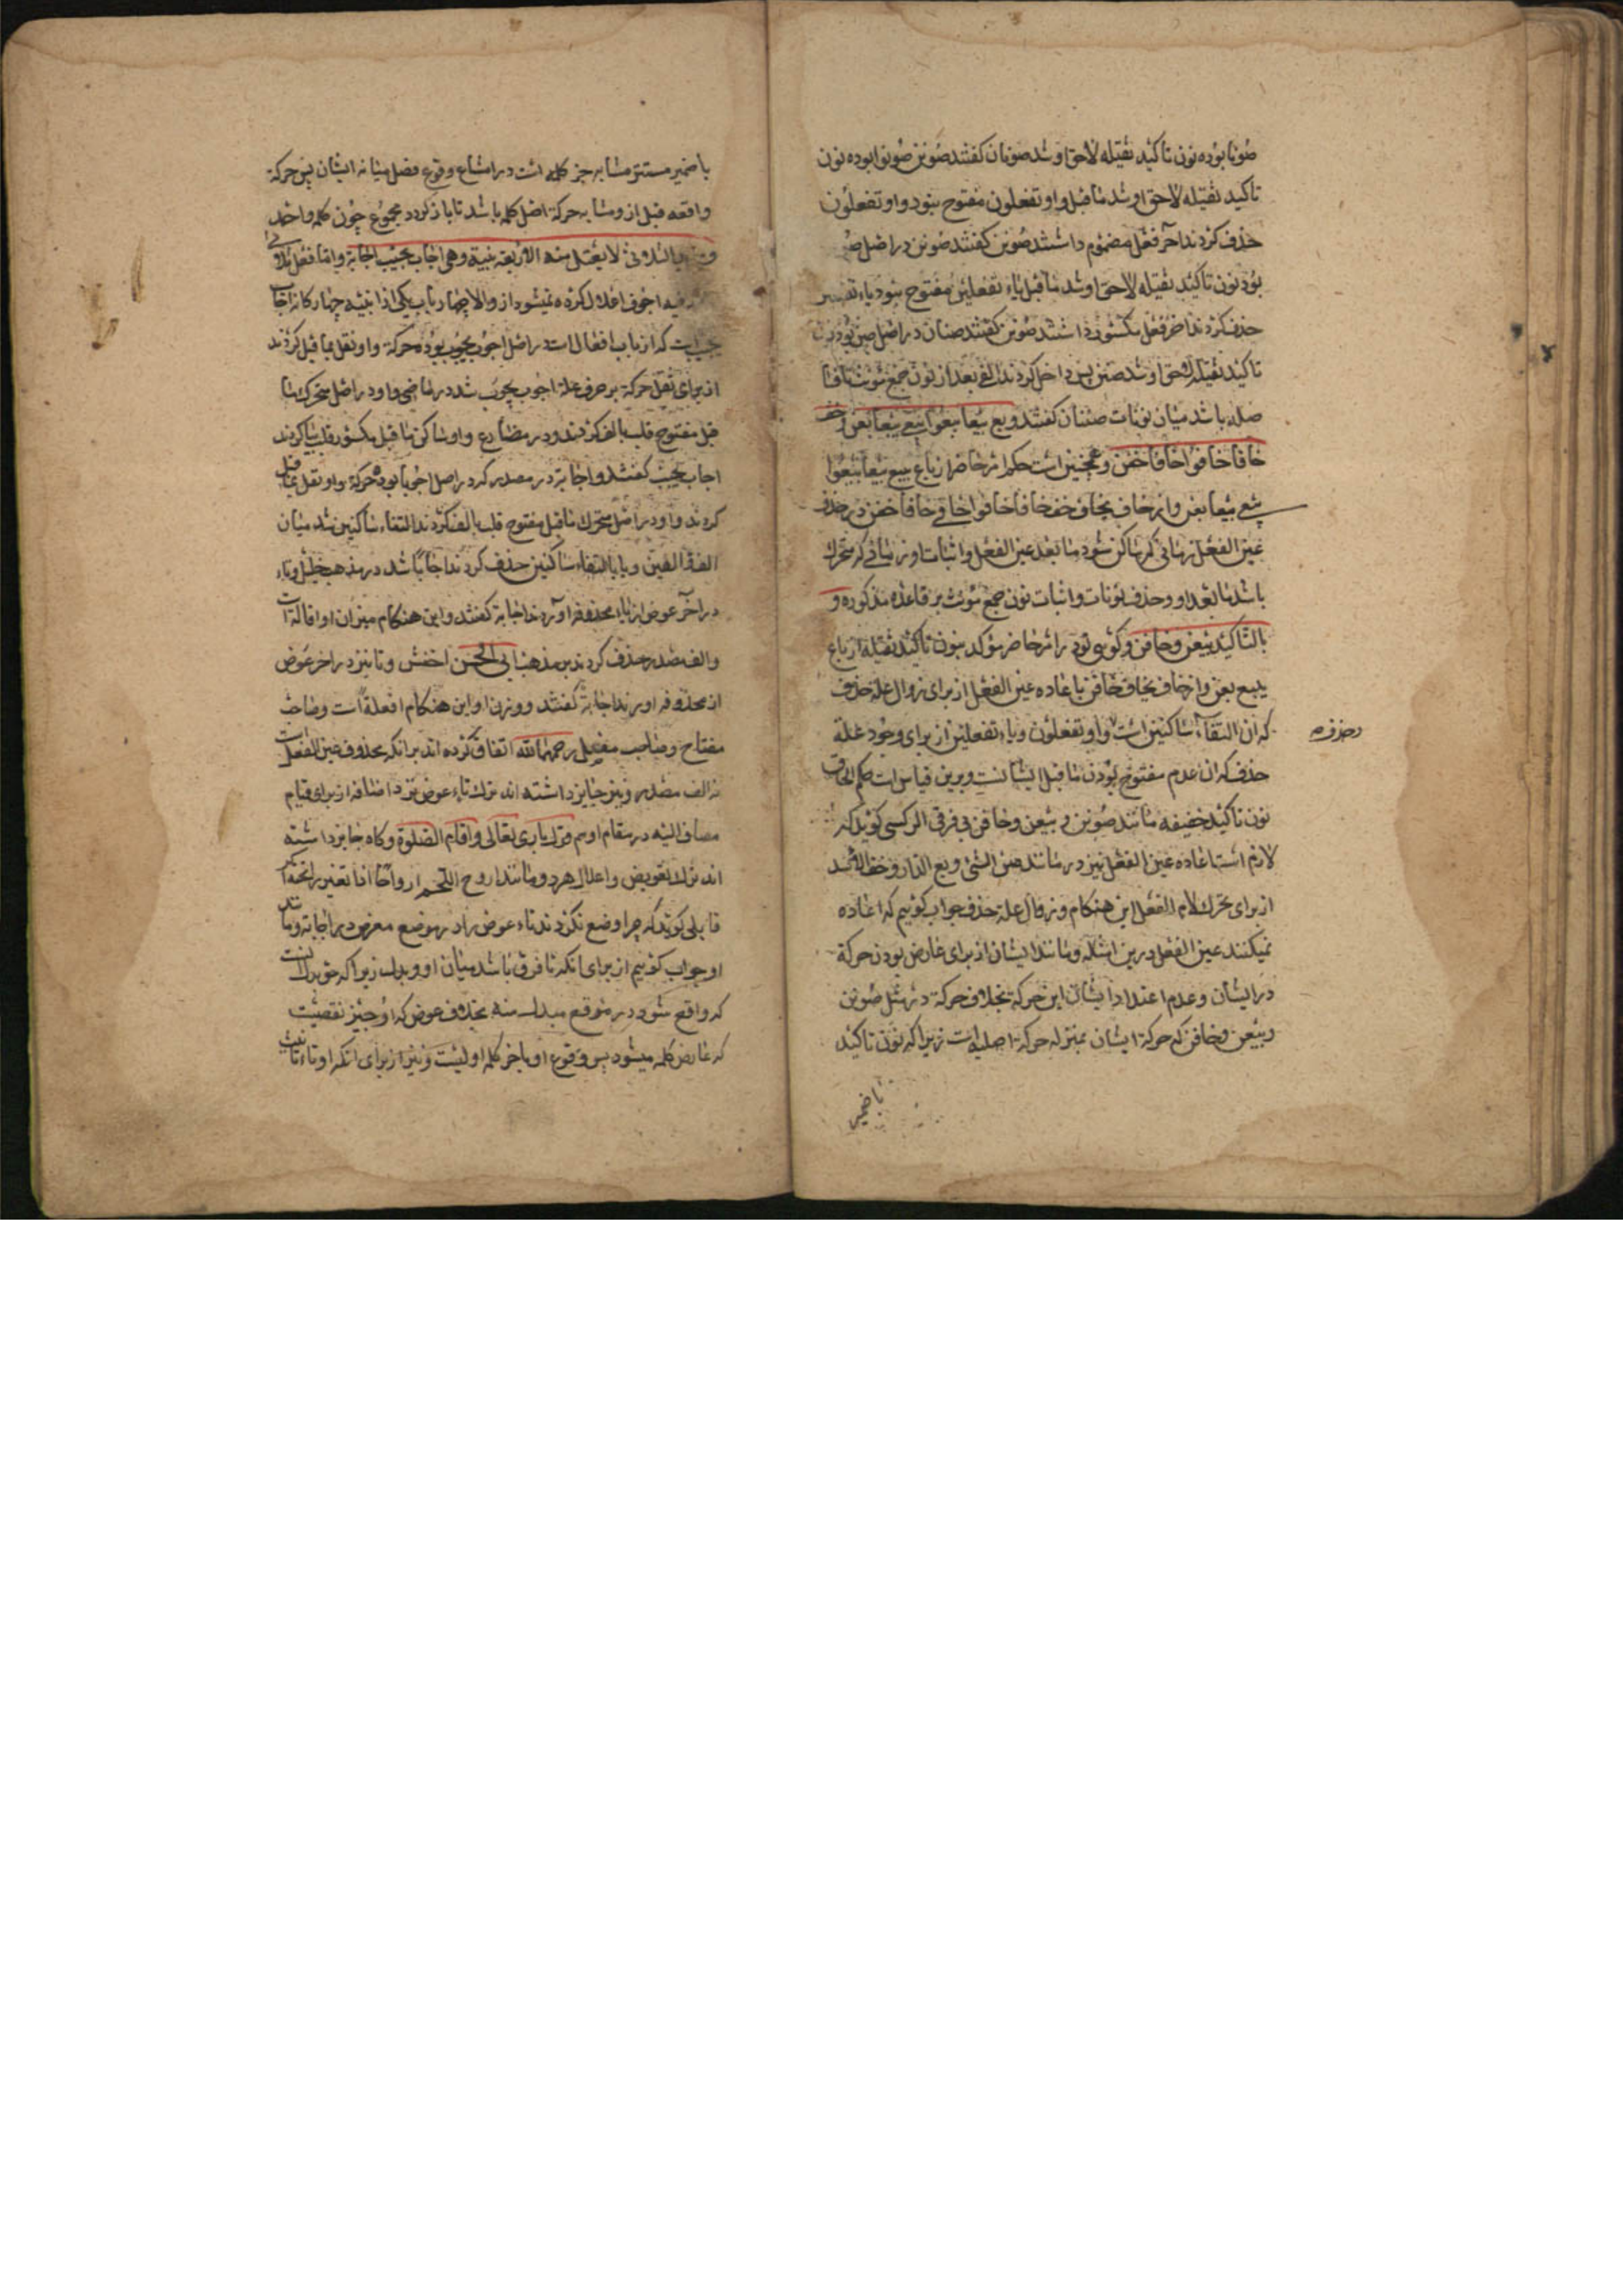 صونا بوده نون تاکید ثقیله لاحق او شد صونان کفتند صونن صونوا بوده نون
تاکید ثقیله لاحق او شد ماقبل واو تفعلون مفتوح نبود واو تفعلون
حذف کردند آخر فعل مضموم داشتند صونن کفتند صونن در اصل
بود نون تاکید ثقیله لاحق او شد ماقبل یاء تفعلین مفتوح نبود یاء
حذف کردند آخر فعل مکسور داشتند صونن کفتند صنان در اصل صن بود نون
تاکید ثقیله لاحق او شد صنن پس داخل کردند الفی بعد از نون جمع مؤنث تا
فاصله باشد میان نونات صننان کفتند وبع بیعا بیعوا بیعی بیعا بعن وخف
خافا خافوا خافی خافا خفن وهمچنین است حکم امر حاضر از باع یبیع بیعا بیعوا
بیعی بیعا بعن واز خاف یخاف خف خافا خافوا خافی خافا خفن در حذف
عین الفعل زمانی که ساکن شود مابعد عین الفعل واثبات او زمانی که متحرک
باشد مابعد او وحذف نونات واثبات نون جمع مؤنث بر قاعده مذکوره و
بالتاکید بیعن وخافن وکوئی تو در امر حاضر مؤکد بنون تاکید ثقیله از باع
یبیع بیعن واز خاف یخاف خافن باعاده عین الفعل از برای زوال علة حذف
که آن التقاء ساکنین است واو تفعلون ویاء تفعلین از برای وجود علة
وحذف
حذف که آن عدم مفتوح بودن ماقبل ایشانست وبرین قیاس است حکم الحاق
نون تاکید خفیفه مانند صونن وبیعن وخافن بی فرقی اگر کسی کوید که
لازم است اعاده عین الفعل نیز در مانند صن الشئ وبع الدار وخف الله
از برای تحرک لام الفعل این هنکام وزوال علة حذف جواب کوئیم که اعاده
نمیکنند عین الفعل درین امثله ومانند ایشان از برای عارض بودن حرکة
در ایشان وعدم اعتداد ایشان این حرکة بخلاف حرکة در مثل صونن
وبیعن وخافن که حرکة ایشان بمنزله حرکة اصلیه است زیرا که نون تاکید
با ضمیر
با ضمیر مستتر مشابه جزء کلمه است در امتناع وقوع فصل میانه ایشان پس حرکة
واقعه قبل از او مشابه حرکة اصل کلمه باشد تا باز کردد مجموع چون کلمه واحد
الثلاثی لا یعتل منه الا اربعة ابنیة وهی اجاب یجیب اجابة واما فعل ثلاثی
فیه اجوف اعلال کرده نمیشود از او الا چهار باب یکی از ابنیه چهارکانه اجاب
یجیب است که از باب افعال است در اصل اجوب یجوب بوده حرکة واو نقل بماقبل کردند
از برای ثقل حرکة بر حرف علة اجوب یجوب شد در ماضی واو در اصل متحرک ما
قبل مفتوح قلب بالف کردند ودر مضارع واو ساکن ماقبل مکسور قلب بیا کردند
اجاب یجیب کفتند واجابة در مصدر که در اصل اجوابا بوده حرکة واو نقل بماقبل
کردند واو در اصل متحرک ماقبل مفتوح قلب بالف کردند التقاء ساکنین شد میان
الفین ویا بالتقاء ساکنین حذف کردند اجابا شد در مذهب خلیل وتاء
در آخر عوض از یاء محذوفه آوردند اجابة کفتند واین هنکام میزان او افالة است
والف مصدر حذف کردند بر مذهب ابی الحسن اخفش وتا نیز در آخر عوض
از محذوفه آوردند اجابة کفتند ووزن او این هنکام افعلة است وصاحب
مفتاح وصاحب مفصل رحمهما الله اتفاق کرده اند بر آنکه محذوف عین الفعل است
نه الف مصدر ونیز جایز داشته اند ترک تاء عوض نزد اضافه از برای قیام
مضاف الیه در مقام او هم قول باری تعالی واقام الصلوة وکاه جایز داشته
اند ترک تعویض واعلال هر دو مانند اروح اللحم ارواحا اذا تغیر رائحته اکر
قایلی کوید که چرا وضع نکردند تاء عوض را در موضع معوض در اجابة ومانند
او جواب کوئیم از برای آنکه تا فرق باشد میان او وبدل زیرا که حق بدل انست
که واقع شود در موقع مبدل منه بخلاف عوض که او جبر نقصیست
که عارض کلمه میشود پس وقوع او باخر کلمه اولیست ونیز از برای آنکه او تاء تانیث